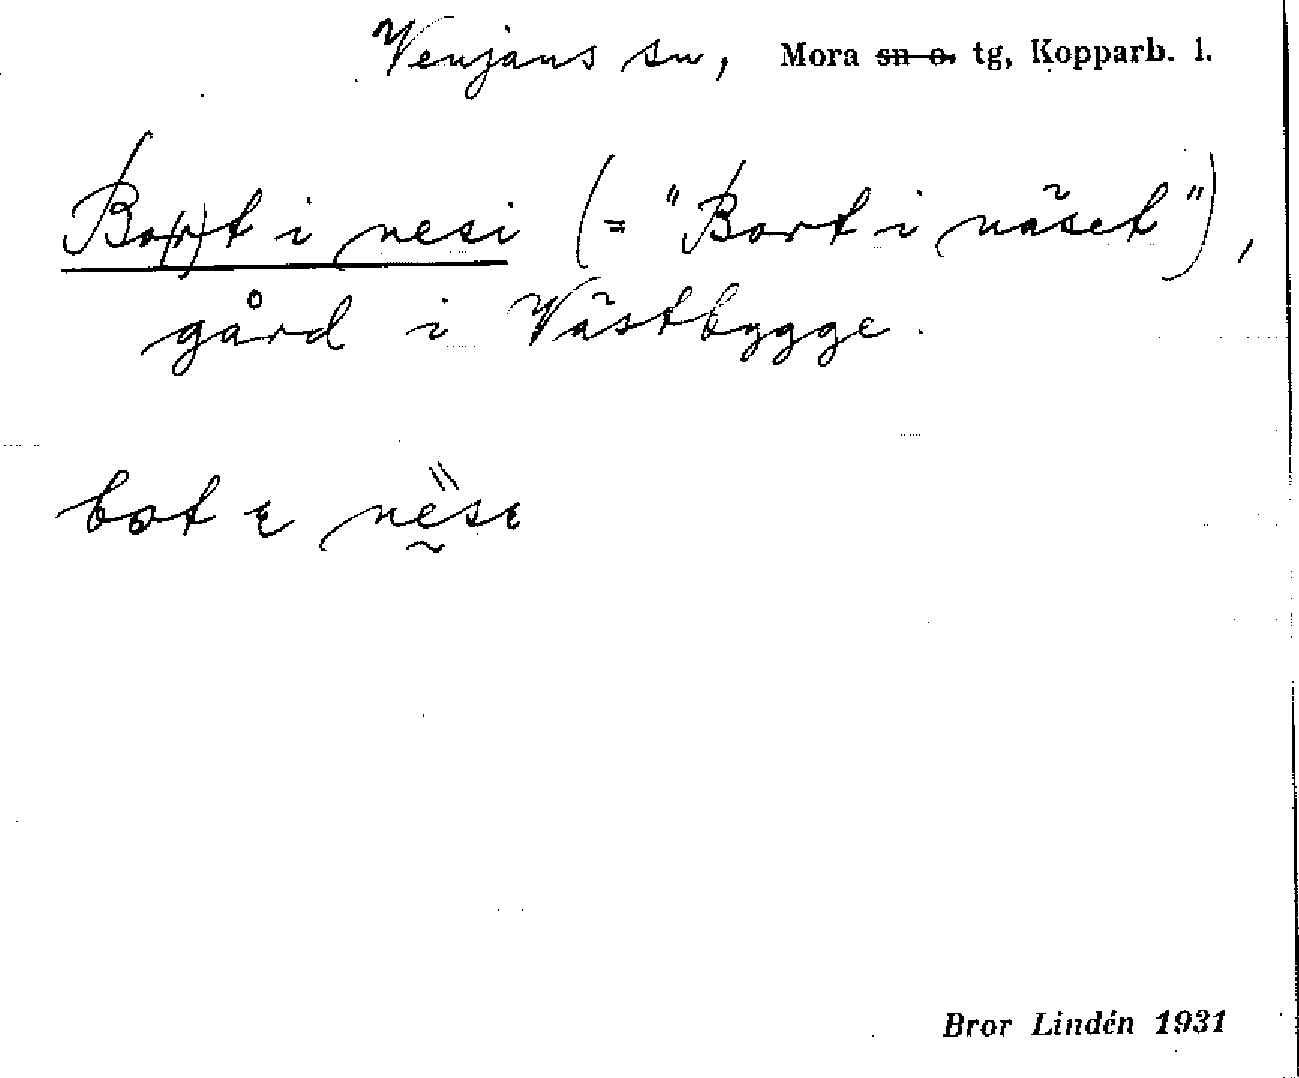 Venjans sn, Mora sn o. tg, Kopparb. l.
Bo(r)t i nesi (= "Bort i näset"),
gård i Västbygge.
bot ɩ nèsɩ
Bror Lindén 1931